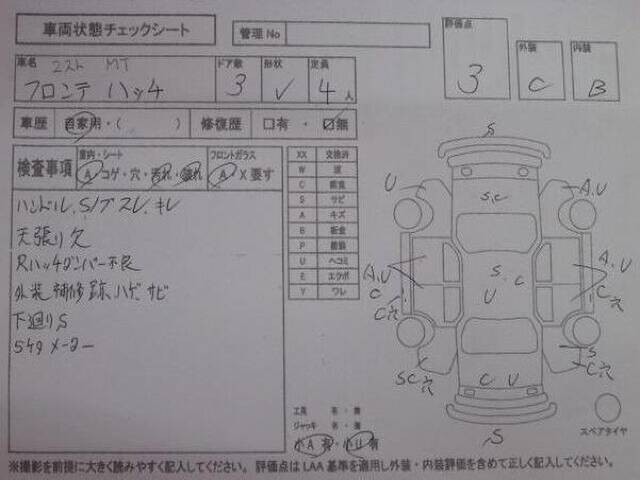 車両状態チェックシート
管理No
評価点 3
外装 C
内装 B
車名 2スト MT
フロンテ ハッチ
ドア数 3
形状 V
定員 4人
車歴 自家用・( )
修復歴 口有・口無
検査事項
室内・シート
A コゲ・穴・汚れ・破れ
フロントガラス
A X要す
ハンドル、S/ブスレ、キレ
天張り欠
Rハッチダンパー不良
外装 補修跡、ハゲ、サビ
下廻りS
5ケタメーター
XX 交換済
W 波
C 腐食
S サビ
A キズ
B 板金
P 塗装
U ヘコミ
E エクボ
Y ワレ
S
U
A,U
S,C
A,U
C
C穴
S,C
U
A,U
C穴
S
C穴
SC穴
C U
S
工具 有・無
ジャッキ 有・無
小A有・小U有
スペアタイヤ
※撮影を前提に大きく読みやすく記入してください。評価点はLAA基準を適用し外装・内装評価を含めて正しく記入してください。